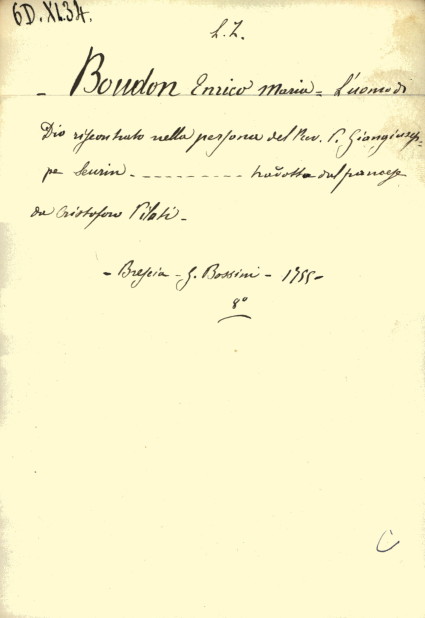 6D.XI.34.
L.Z.
- Boudon Enrico Maria = L'uomo di
Dio riscontrato nella persona del Rev. P. Giangiusep-
pe Seurin - - - - - - - - - tradotta dal francese
da Cristoforo Pilati -
- Brescia - G. Bossini - 1755 -
8°
C